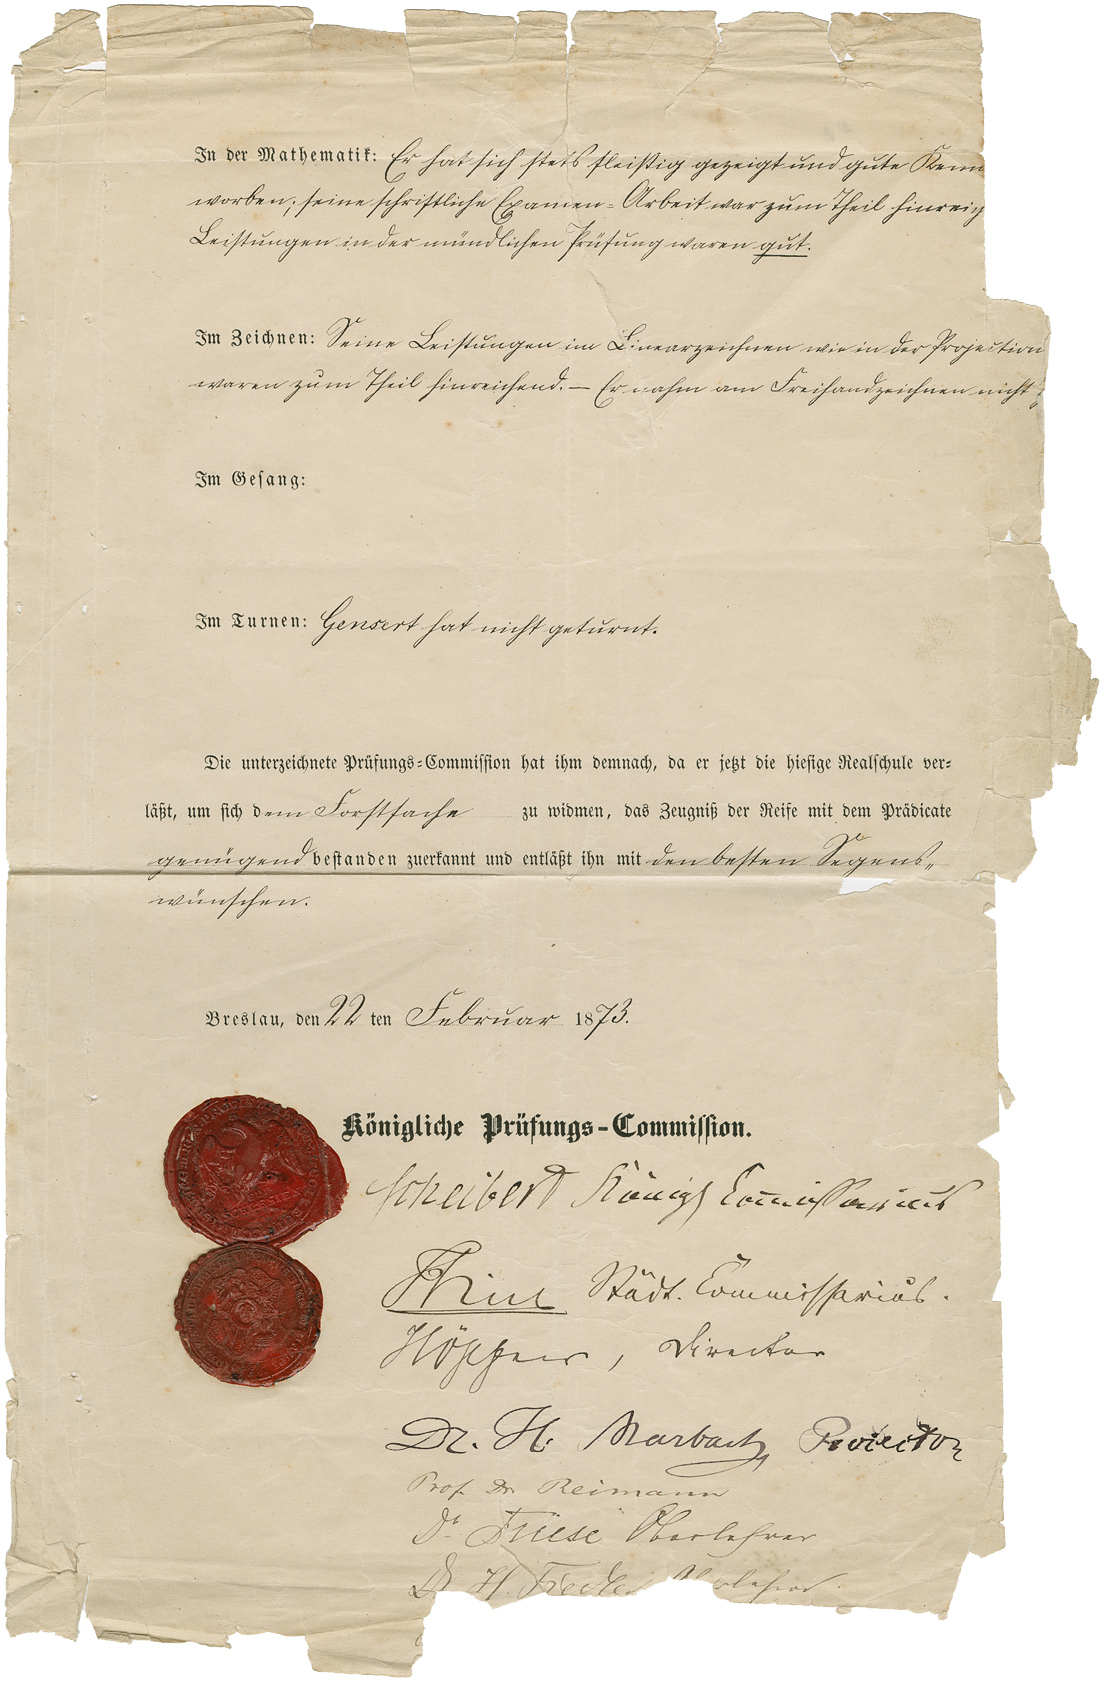 In der Mathematik: Er hat sich stets fleißig gezeigt und gute Kenn
worben; seine schriftliche Examen-Arbeit war zum Theil hinreich
Leistungen in der mündlichen Prüfung waren gut.
Im Zeichnen: Seine Leistungen im Linearzeichnen wie in der Projection
waren zum Theil hinreichend. — Er nahm am Freihandzeichnen nicht
Im Gesang:
Im Turnen: Gensert hat nicht geturnt.
Die unterzeichnete Prüfungs-Commission hat ihm demnach, da er jetzt die hiesige Realschule ver-
läßt, um sich dem Forstfache zu widmen, das Zeugniß der Reife mit dem Prädicate
genügend bestanden zuerkannt und entläßt ihn mit den besten Segens-
wünschen.
Breslau, den 22 ten Februar 1873.
Königliche Prüfungs-Commission.
Scheibert Königl Commissarius
Städt. Commissarius.
Director
Dr. H. Marbach, Prorector
Prof. Dr. Reimann
Dr. Friese Oberlehrer
Dr. H. Fiedler Oberlehrer